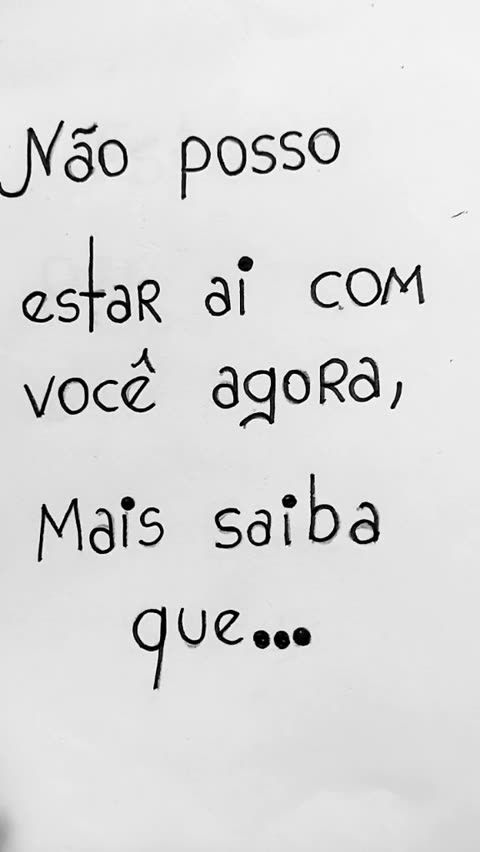 Não posso
estar ai com
você agora,
Mais saiba
que...